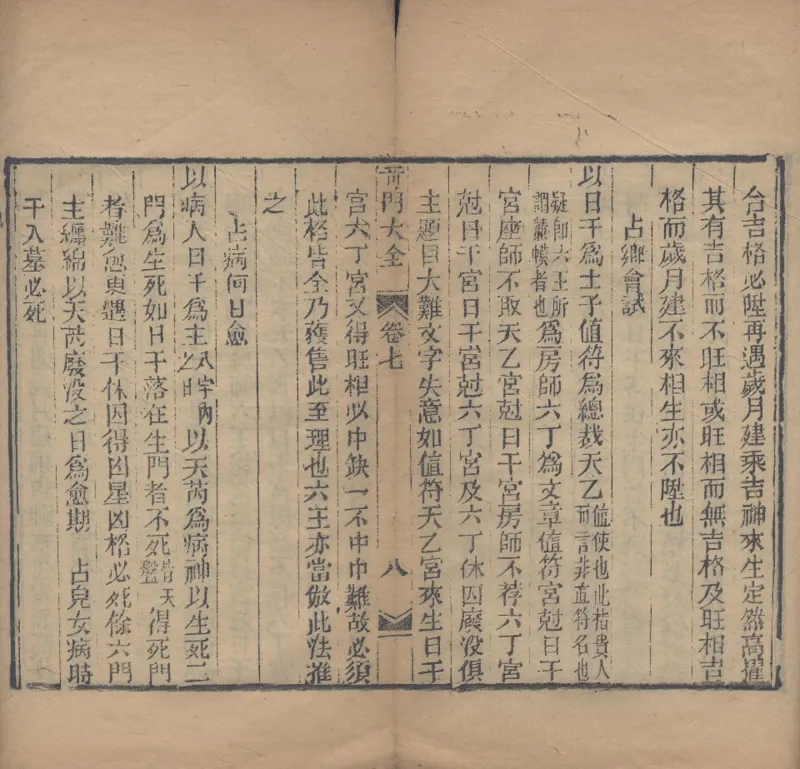 合吉格必陞再遇歲月建乘吉神來生定然高擢
其有吉格而不旺相或旺相而無吉格及旺相吉
格而歲月建不來相生亦不陞也
占鄉會試
以日干爲士子值符爲總裁天乙値使也此楛貴人而言非直符名也
疑卽六壬所謂簾幙者也爲房師六丁爲文章値符宮尅日干
宮座師不取天乙宮尅日干宮房師不荐六丁宮
尅日干宮日干宮尅六丁宮及六丁休囚廢没俱
主題目大難文字失意如值符天乙宮來生日干
奇門大全 卷七 八
宮六丁宮又得旺相必中缺一不中中難故必須
此格皆全乃獲售此至理也六壬亦當倣此法推
之
占病何日愈
以病人日干爲主八字內之日以天芮爲病神以生死二
門爲生死如日干落在生門者不死皆天盤得死門
者難愈更遇日干休囚得凶星凶格必死餘六門
主纏綿以天芮廢没之日爲愈期 占兒女病時
干入墓必死